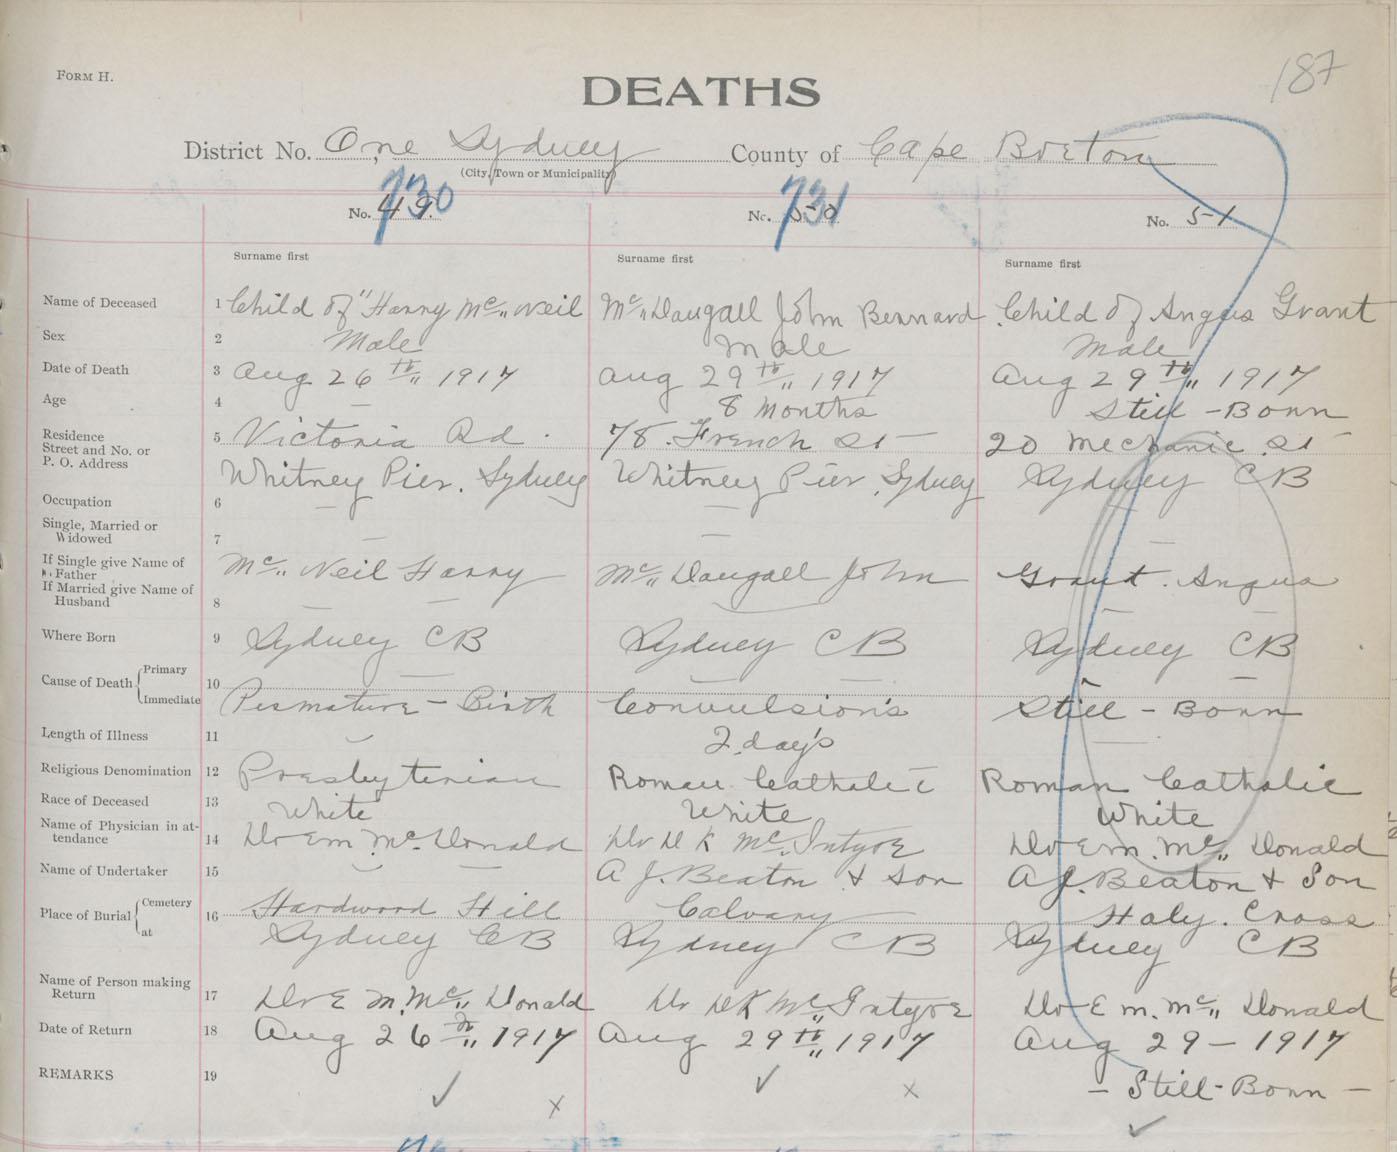 FORM H.
187
DEATHS
District No. One Sydney County of Cape Breton
(City, Town or Municipality)
730 731
No. 49. No. 50 No. 51
Surname first Surname first Surname first
Name of Deceased 1 Child of "Harry Mc" Neil Mc" Dougall John Bernard Child of Angus Grant
Sex 2 Male Male Male
Date of Death 3 Aug 26th" 1917 Aug 29th" 1917 Aug 29th" 1917
Age 4 — 8 Months Still - Born
Residence 5 Victoria Rd. 78. French St — 20 Mechanic. St —
Street and No. or
P. O. Address Whitney Pier. Sydney Whitney Pier, Sydney Sydney CB
Occupation 6 — —
Single, Married or
Widowed 7 — — —
If Single give Name of
Father Mc" Neil Harry Mc" Dougall John Grant. Angus
If Married give Name of
Husband 8 — — — —
Where Born 9 Sydney CB Sydney CB Sydney CB
Cause of Death Primary 10 — — — — —
Immediate Premature - Birth Convulsions Still - Born
Length of Illness 11 2 days —
Religious Denomination 12 Presbyterian Roman Catholic Roman Catholic
Race of Deceased 13 White White White
Name of Physician in at-
tendance 14 Dr E M. Mc. Donald Dr D K Mc. Intyre Dr E M. Mc" Donald
Name of Undertaker 15 — A J. Beaton & Son A J. Beaton & Son
Place of Burial Cemetery 16 Hardwood Hill Calvary Holy. Cross
at Sydney CB Sydney CB Sydney CB
Name of Person making
Return 17 Dr E M. Mc" Donald Dr DK Mc" Intyre Dr E M. Mc" Donald
Date of Return 18 Aug 26th" 1917 Aug 29th" 1917 Aug 29 - 1917
REMARKS 19 ✓ x ✓ x — Still-Born —
✓